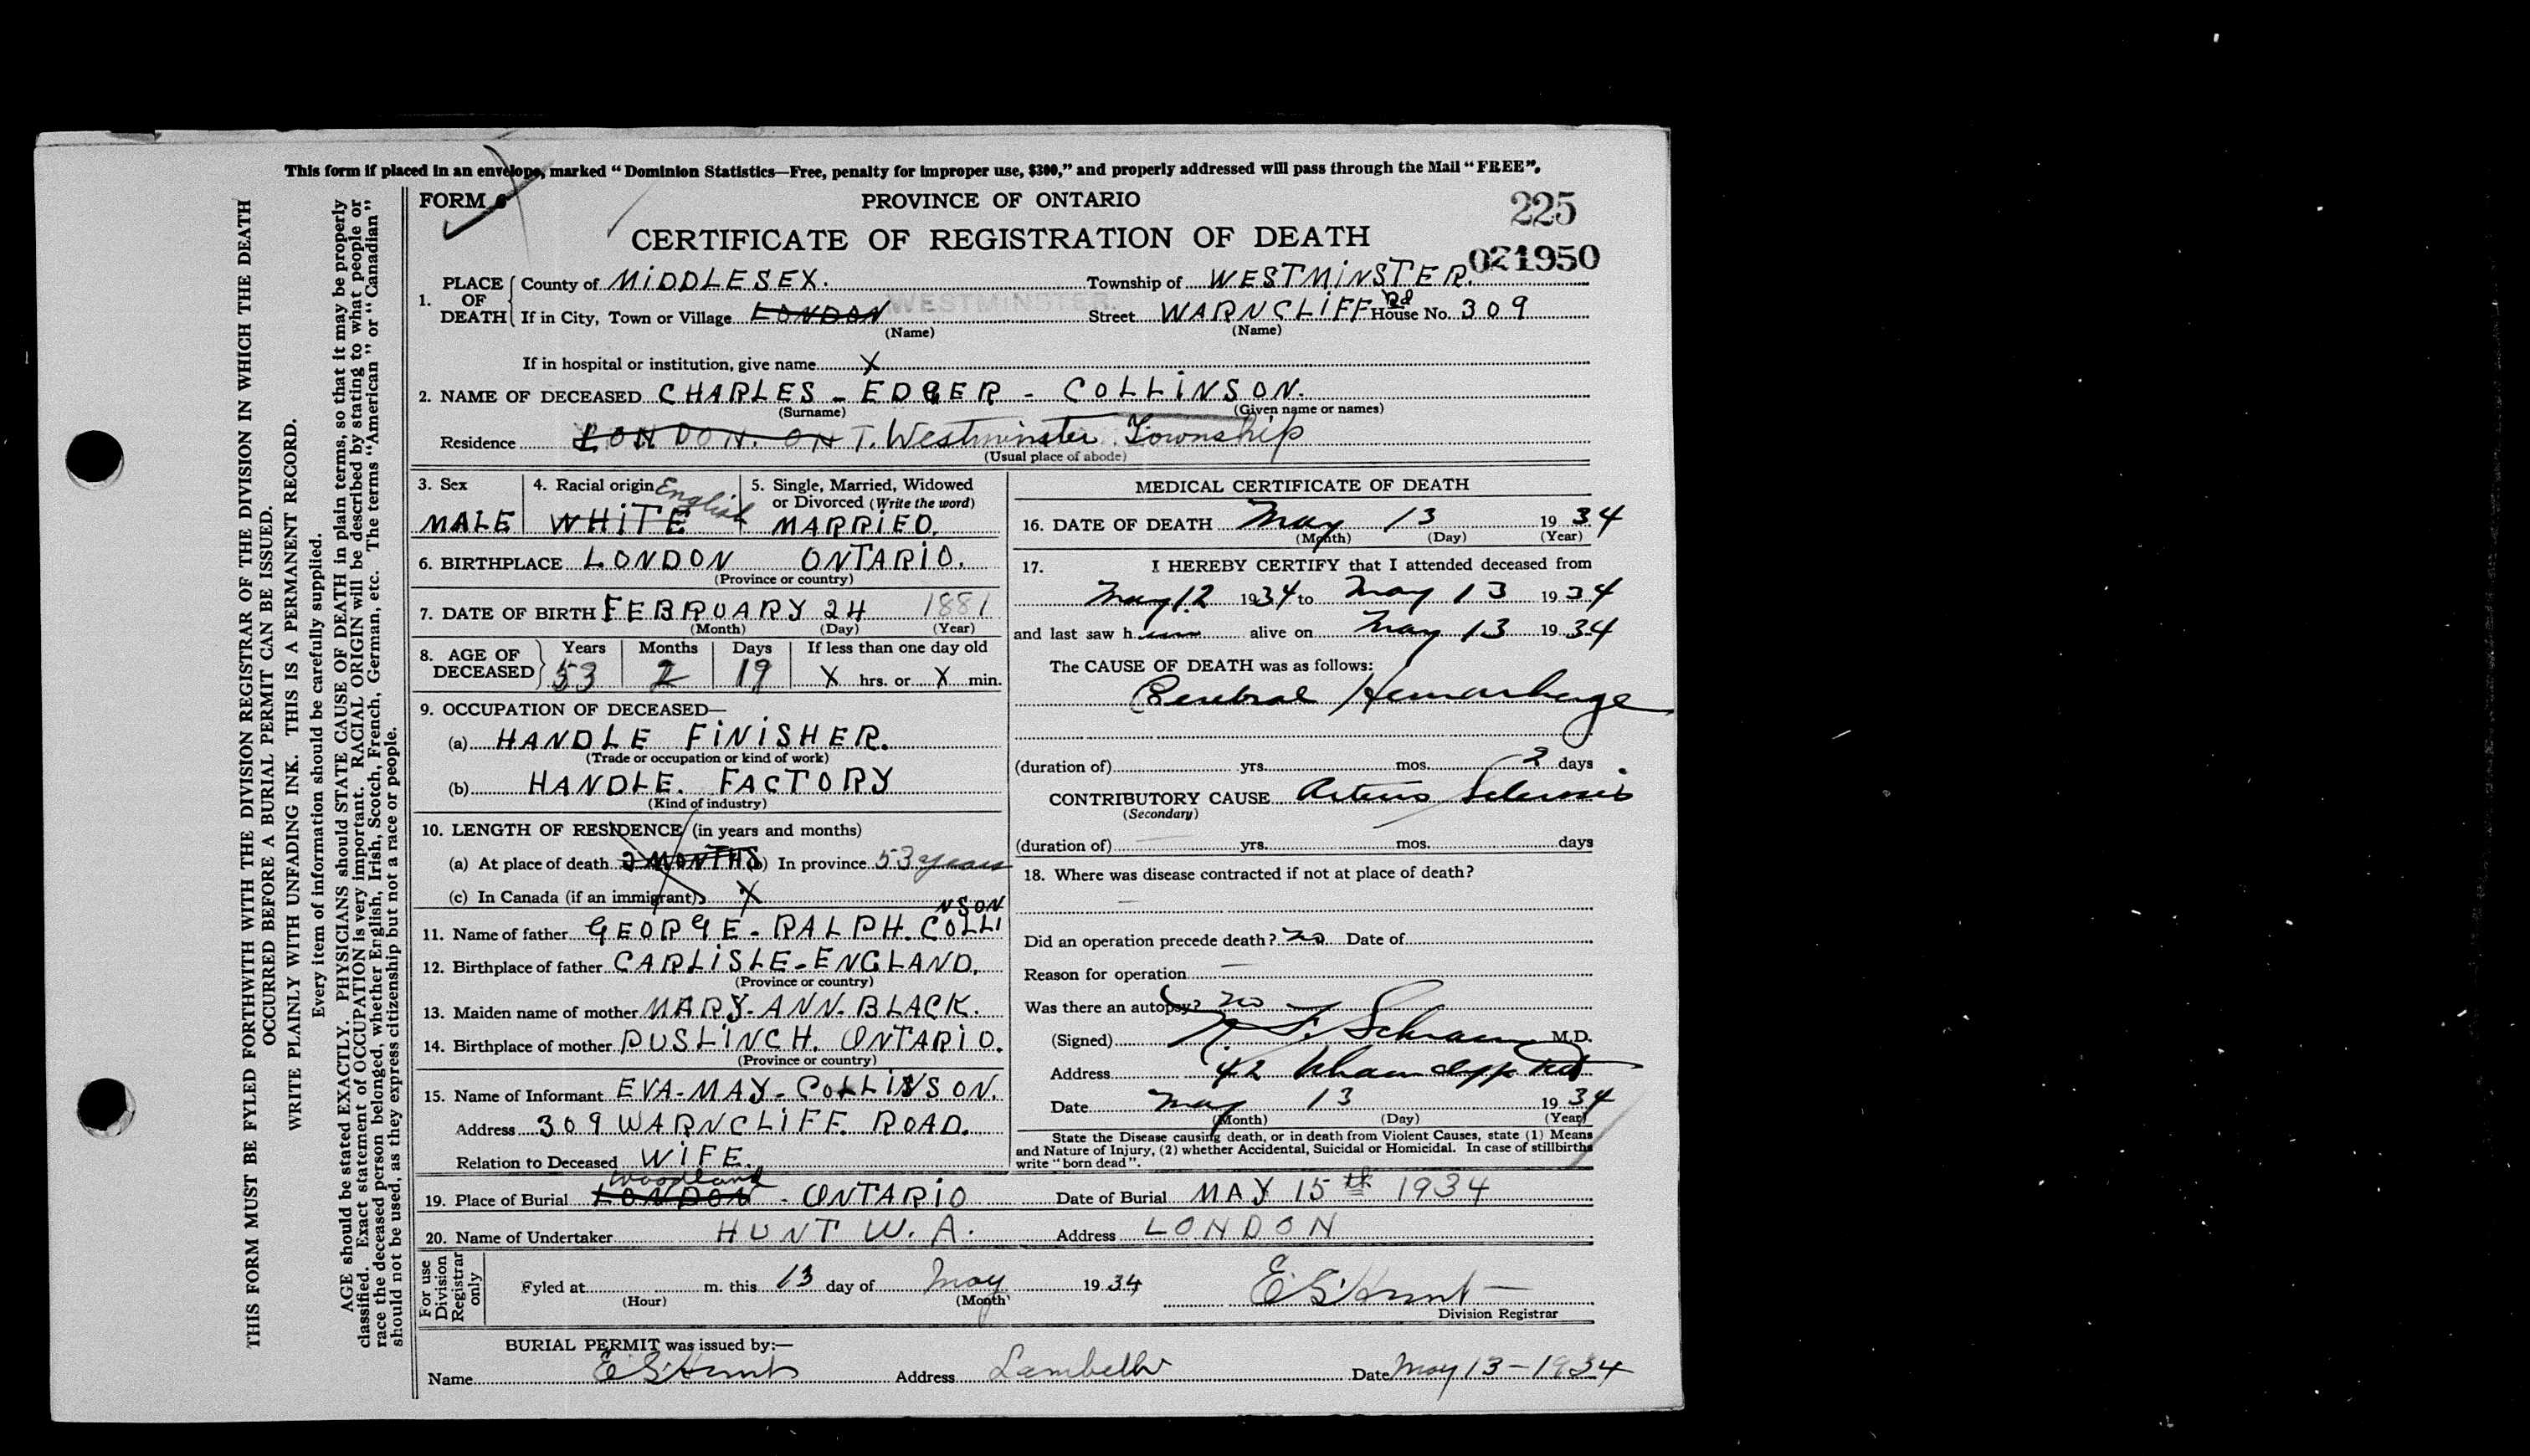 This form if placed in an envelope, marked "Dominion Statistics—Free, penalty for improper use, $300," and properly addressed will pass through the Mail "FREE".
FORM 6 PROVINCE OF ONTARIO 225
CERTIFICATE OF REGISTRATION OF DEATH 021950
1. PLACE OF DEATH County of MIDDLESEX. Township of WESTMINSTER.
If in City, Town or Village LONDON WESTMINSTER. Street WARNCLIFF Rd House No. 309
(Name) (Name)
If in hospital or institution, give name X
2. NAME OF DECEASED CHARLES - EDGER - COLLINSON.
(Surname) (Given name or names)
Residence LONDON. ONT. Westminster Township
(Usual place of abode)
3. Sex 4. Racial origin English 5. Single, Married, Widowed or Divorced (Write the word)
MALE WHITE MARRIED.
6. BIRTHPLACE LONDON ONTARIO.
(Province or country)
7. DATE OF BIRTH FEBRUARY 24 1881
(Month) (Day) (Year)
8. AGE OF DECEASED Years Months Days If less than one day old
53 2 19 X hrs. or X min.
9. OCCUPATION OF DECEASED—
(a) HANDLE FINISHER.
(Trade or occupation or kind of work)
(b) HANDLE. FACTORY
(Kind of industry)
10. LENGTH OF RESIDENCE (in years and months)
(a) At place of death 2 MONTHS (b) In province 53 years
(c) In Canada (if an immigrant) X
11. Name of father GEORGE - RALPH. COLLINSON
12. Birthplace of father CARLISLE - ENGLAND.
(Province or country)
13. Maiden name of mother MARY. ANN. BLACK.
14. Birthplace of mother PUSLINCH. ONTARIO.
(Province or country)
15. Name of Informant EVA - MAY - COLLINSON.
Address 309 WARNCLIFF ROAD.
Relation to Deceased WIFE.
MEDICAL CERTIFICATE OF DEATH
16. DATE OF DEATH May 13 1934
(Month) (Day) (Year)
17. I HEREBY CERTIFY that I attended deceased from
May 12 1934 to May 13 1934
and last saw him alive on May 13 1934
The CAUSE OF DEATH was as follows:
Cerebral Hemorrhage
(duration of) yrs. mos. 2 days
CONTRIBUTORY CAUSE Arterio Sclerosis
(Secondary)
(duration of) yrs. mos. days
18. Where was disease contracted if not at place of death?
Did an operation precede death? no Date of
Reason for operation —
Was there an autopsy? no
(Signed) Schram M.D.
Address 42 Wharncliffe Rd
Date May 13 1934
(Month) (Day) (Year)
State the Disease causing death, or in death from Violent Causes, state (1) Means
and Nature of Injury, (2) whether Accidental, Suicidal or Homicidal. In case of stillbirths
write "born dead".
19. Place of Burial LONDON Woodland - ONTARIO Date of Burial MAY 15th 1934
20. Name of Undertaker HUNT W. A. Address LONDON
For use Division Registrar only
Fyled at m. this 13 day of May 1934 E S Hunt
(Hour) (Month) Division Registrar
BURIAL PERMIT was issued by:—
Name E S Hunt Address Lambeth Date May 13 - 1934
THIS FORM MUST BE FYLED FORTHWITH WITH THE DIVISION REGISTRAR OF THE DIVISION IN WHICH THE DEATH
OCCURRED BEFORE A BURIAL PERMIT CAN BE ISSUED.
WRITE PLAINLY WITH UNFADING INK. THIS IS A PERMANENT RECORD.
Every item of information should be carefully supplied.
AGE should be stated EXACTLY. PHYSICIANS should STATE CAUSE OF DEATH in plain terms, so that it may be properly
classified. Exact statement of OCCUPATION is very important. RACIAL ORIGIN will be described by stating to what people or
race the deceased person belonged, whether English, Irish, Scotch, French, German, etc. The terms "American" or "Canadian"
should not be used, as they express citizenship but not a race or people.